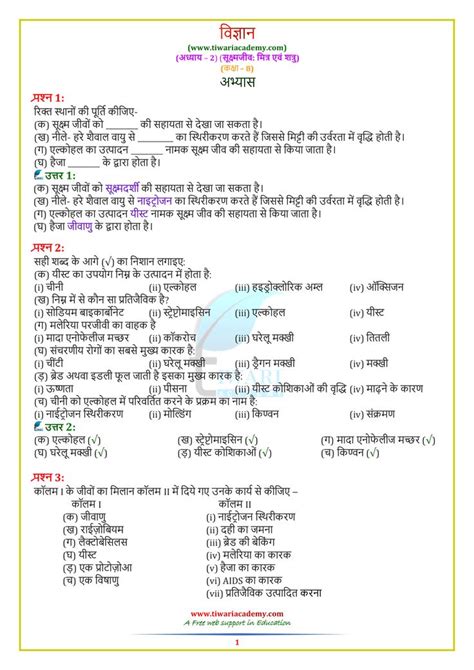 विज्ञान
(www.tiwariacademy.com)
(अध्याय – 2) (सूक्ष्मजीव: मित्र एवं शत्रु)
(कक्षा – 8)
अभ्यास
प्रश्न 1:
रिक्त स्थानों की पूर्ति कीजिए-
(क) सूक्ष्म जीवों को ______ की सहायता से देखा जा सकता है।
(ख) नीले- हरे शैवाल वायु से ______ का स्थिरीकरण करते हैं जिससे मिट्टी की उर्वरता में वृद्धि होती है।
(ग) एल्कोहल का उत्पादन ______ नामक सूक्ष्म जीव की सहायता से किया जाता है।
(घ) हैजा ______ के द्वारा होता है।
उत्तर 1:
(क) सूक्ष्म जीवों को सूक्ष्मदर्शी की सहायता से देखा जा सकता है।
(ख) नीले- हरे शैवाल वायु से नाइट्रोजन का स्थिरीकरण करते हैं जिससे मिट्टी की उर्वरता में वृद्धि होती है।
(ग) एल्कोहल का उत्पादन यीस्ट नामक सूक्ष्म जीव की सहायता से किया जाता है।
(घ) हैजा जीवाणु के द्वारा होता है।
प्रश्न 2:
सही शब्द के आगे (√) का निशान लगाइए:
(क) यीस्ट का उपयोग निम्न के उत्पादन में होता है:
(i) चीनी (ii) एल्कोहल (iii) हइड्रोक्लोरिक अम्ल (iv) ऑक्सिजन
(ख) निम्न में से कौन सा प्रतिजैविक है?
(i) सोडियम बाइकार्बोनेट (ii) स्ट्रेप्टोमाइसिन (iii) एल्कोहल (iv) यीस्ट
(ग) मलेरिया परजीवी का वाहक है
(i) मादा एनोफेलीज मच्छर (ii) कॉकरोच (iii) घरेलू मक्खी (iv) तितली
(घ) संचरणीय रोगों का सबसे मुख्य कारक है:
(i) चींटी (ii) घरेलू मक्खी (iii) ड्रैगन मक्खी (iv) मकड़ी
(ड़) ब्रेड अथवा इडली फूल जाती है इसका मुख्य कारक है:
(i) ऊष्णता (ii) पीसना (iii) यीस्ट कोशिकाओं की वृद्धि (iv) माढ़ने के कारण
(च) चीनी को एल्कोहल में परिवर्तित करने के प्रक्रम का नाम है:
(i) नाईट्रोजन स्थिरीकरण (ii) मोल्डिंग (iii) किण्वन (iv) संक्रमण
उत्तर 2:
(क) एल्कोहल (√) (ख) स्ट्रेप्टोमाइसिन (√) (ग) मादा एनोफेलीज मच्छर (√)
(घ) घरेलू मक्खी (√) (ड़) यीस्ट कोशिकाओं (√) (च) किण्वन (√)
प्रश्न 3:
कॉलम I के जीवों का मिलान कॉलम II में दिये गए उनके कार्य से कीजिए –
कॉलम I कॉलम II
(क) जीवाणु (i) नाईट्रोजन स्थिरीकरण
(ख) राईज़ोबियम (ii) दही का जमना
(ग) लैक्टोबेसिलस (iii) ब्रेड की बेकिंग
(घ) यीस्ट (iv) मलेरिया का कारक
(ड़) एक प्रोटोज़ोआ (v) हैजा का कारक
(च) एक विषाणु (vi) AIDS का कारक
(vii) प्रतिजैविक उत्पादित करना
www.tiwariacademy.com
A Free web support in Education
1